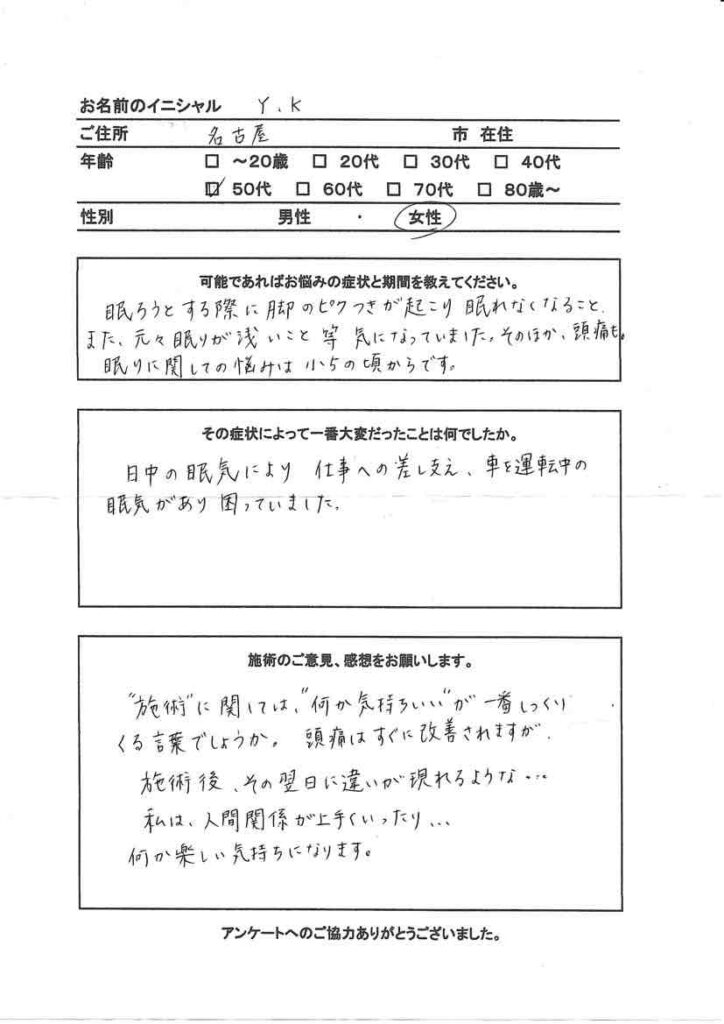 お名前のイニシャル Y.K
ご住所 名古屋 市 在住
年齢 □ ～20歳 □ 20代 □ 30代 □ 40代
☑ 50代 □ 60代 □ 70代 □ 80歳～
性別 男性 ・ 女性
可能であればお悩みの症状と期間を教えてください。
眠ろうとする際に脚のピクつきが起こり眠れなくなること.
また、元々眠りが浅いこと等 気になっていました。そのほか、頭痛も。
眠りに関しての悩みは小5の頃からです。
その症状によって一番大変だったことは何でしたか。
日中の眠気により 仕事への差し支え、車を運転中の
眠気があり困っていました。
施術のご意見、感想をお願いします。
“施術”に関しては、“何か気持ちいい”が一番しっくり
くる言葉でしょうか。 頭痛はすぐに改善されますが、
施術後、その翌日に違いが現れるような…
私は、人間関係が上手くいったり…
何か楽しい気持ちになります。
アンケートへのご協力ありがとうございました。